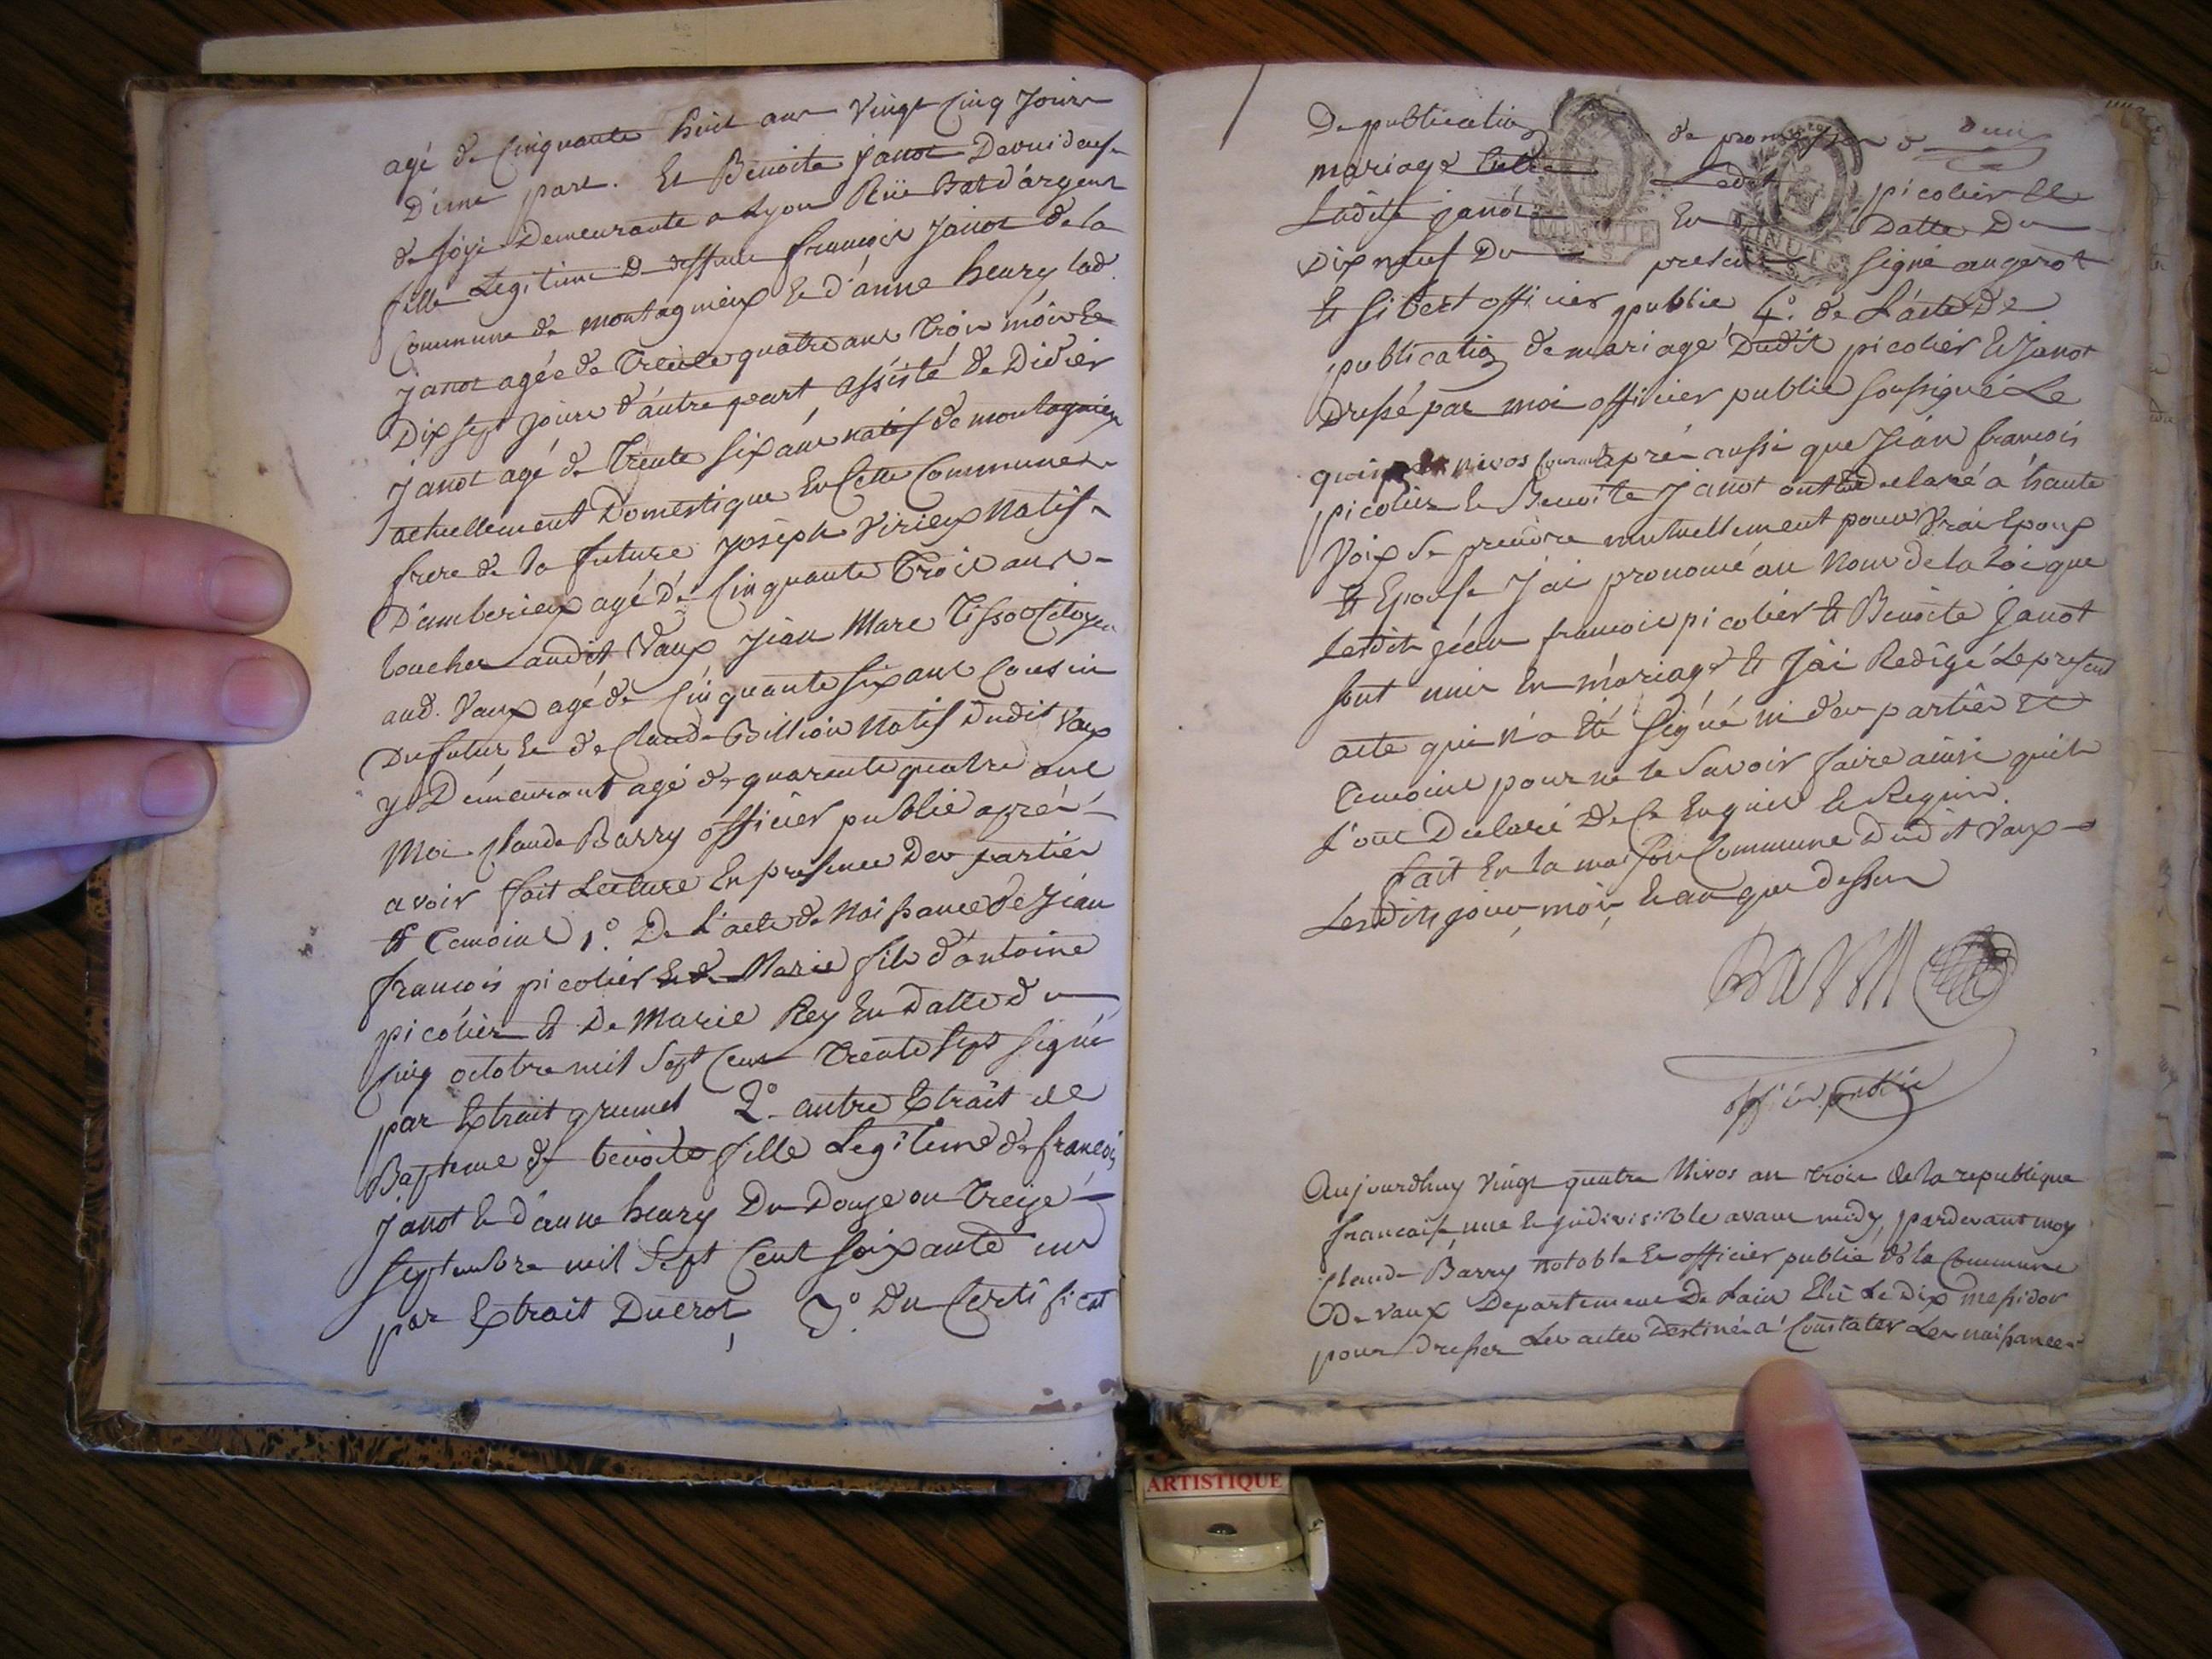 agé de Cinquante huit ans Vingt Cinq Jours
D'une part. Et Benoite Janot Devuideuse
de soye Demeurante a Lyon Rüe Bat d'argent
fille Legitime De deffunt françois Janot de la
Commune de montagnieux Et d'anne henry lad.
Janot agée de Trente quatre ans Trois mois Et
Dix sept jours d'autre part assisté de Didier
Janot agé de Trente six ans natif de montagnieux
actuellement Domestique En Cette Commune
frere de la future Joseph Virieux Natif
D'amberieux agé de Cinquante Trois ans
boucher audit Vaux Jean Marc Tissot Citoyen
aud. Vaux agé de Cinquante six ans Cousin
Du futur Et de Claude Billion Natif dudit Vaux
y Demeurant agé de quarante quatre ans
Moi Claude Barry officier public aprés
avoir fait Lecture En presence Des parties
Et Temoins 1.° De L'acte de Naissance de Jean
françois picolier Et de Marie fils d'antoine
picolier Et De Marie Rey En Datte du
Cinq octobre mil Sept Cent Trente Sept Signé
par Extrait grumet 2.° autre Extrait de
Bapteme de benoite fille Legitime de françois
Janot Et d'anne henry Du Douze ou Treize
Septembre mil Sept Cent soixante un
par Extrait Duerot 3.° Du Certificat
De publication de promesse de
mariage Entre Ledit picolier Et
Ladite Janot En Datte Du
Dix neuf Du present signé augerot
MINUTE
S
MINUTE
S
Et Sibert officier public 4.° de L'acte de
publication de mariage Dudit picolier Et Janot
Dressé par moi officier public soussigné Le
quinze nivos Courant aprés aussi que Jean françois
picolier Et Benoite Janot ont Declaré á haute
Voix Se prendre mutuellement pour Vrai Epoux
Et Epouse J'ai prononcé au Nom de la Loi que
Lesdits Jean françois picolier Et Benoite Janot
sont unis En mariage Et J'ai Redigé Le present
acte qui n'a Eté Signé ni des parties Et
Temoins pour ne le Savoir faire ainsi qu'ils
L'ont Declaré De Ce Enquis Et Requis.
fait En la maison Commune Dudit Vaux
Lesdits jour, mois, Et an que dessus
Barry
officier public
Aujourdhuy Vingt quatre Nivos an trois de la republique
francaise une Et jndivisible avant midy, pardevant moy
Claude Barry notable Et officier public de la Commune
De vaux Departement De Lain Elû Le Dix messidor
pour Dresser Les actes Destinés a Constater Les naissances
ARTISTIQUE